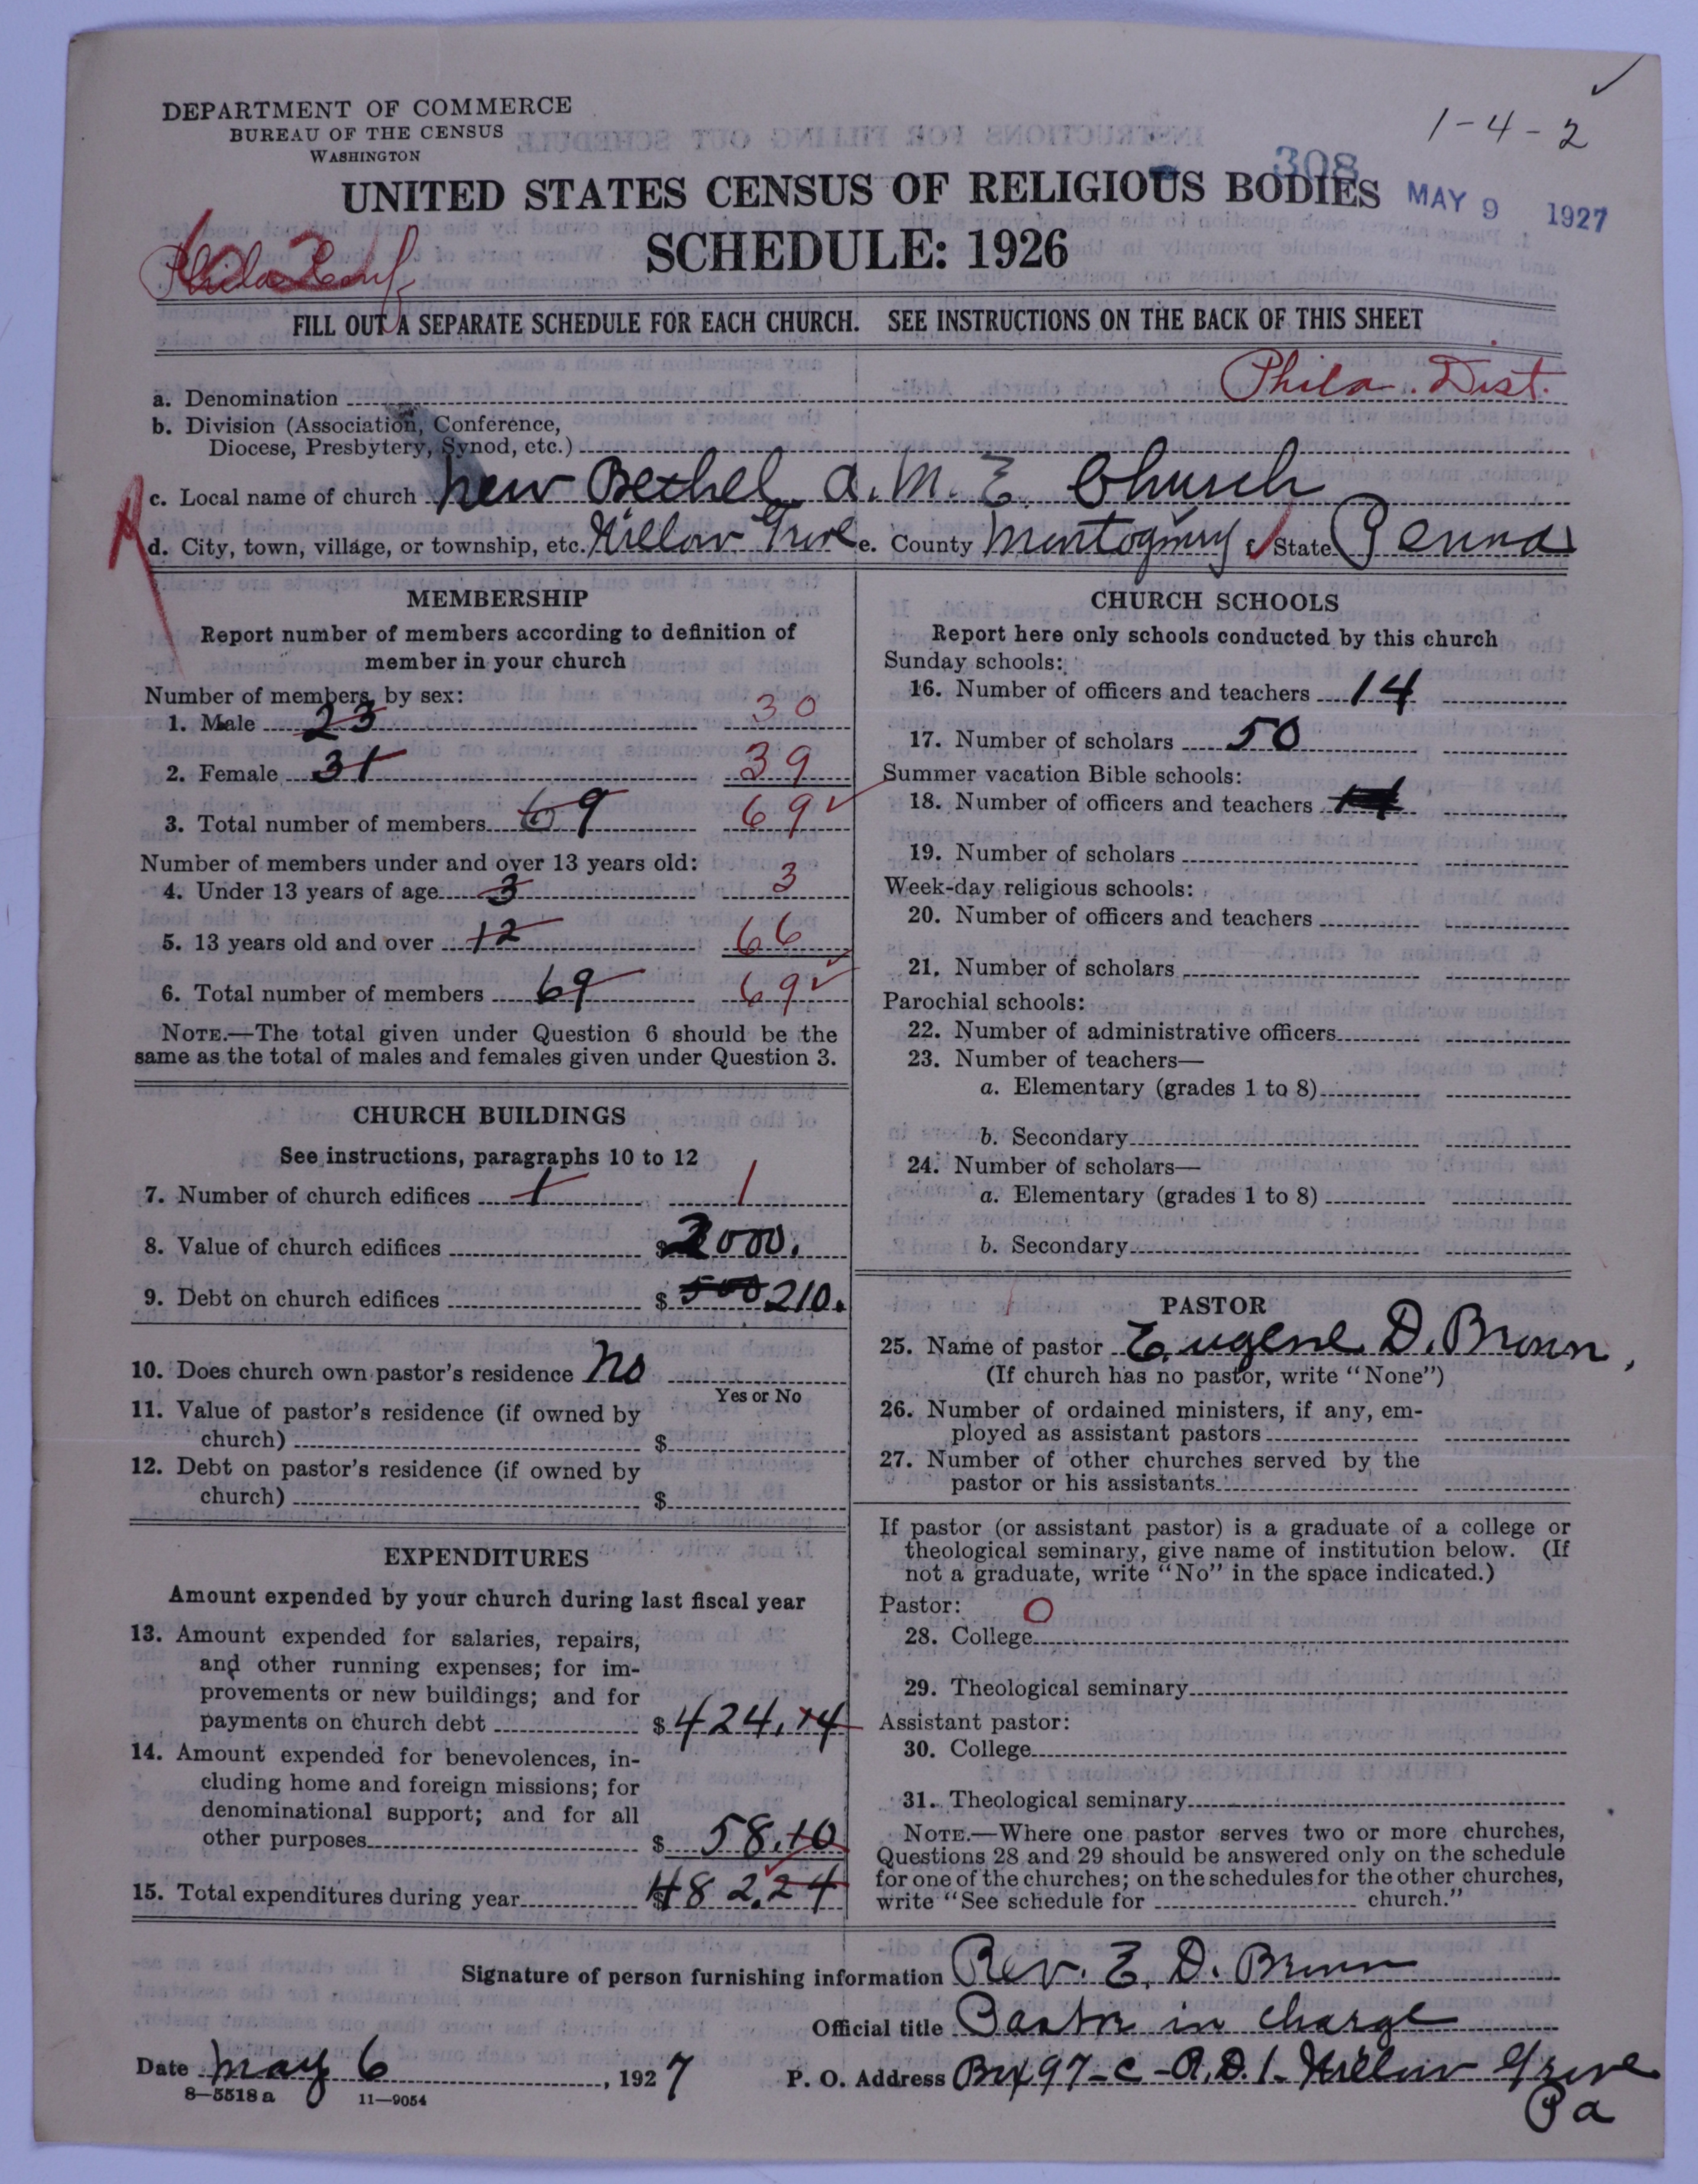 DEPARTMENT OF COMMERCE
BUREAU OF THE CENSUS
WASHINGTON
1-4-2
308
UNITED STATES CENSUS OF RELIGIOUS BODIES
MAY 9 1927
SCHEDULE: 1926
Phila Conf.
FILL OUT A SEPARATE SCHEDULE FOR EACH CHURCH. SEE INSTRUCTIONS ON THE BACK OF THIS SHEET
Phila. Dist.
a. Denomination
b. Division (Association, Conference,
Diocese, Presbytery, Synod, etc.)
c. Local name of church New Bethel A. M. E. Church
d. City, town, village, or township, etc. Willow Grove e. County Montogmry f. State Penna
MEMBERSHIP
Report number of members according to definition of
member in your church
Number of members, by sex:
1. Male 23 30
2. Female 31 39
3. Total number of members 69 69
Number of members under and over 13 years old:
4. Under 13 years of age 3 3
5. 13 years old and over 12 66
6. Total number of members 69 69
NOTE.—The total given under Question 6 should be the
same as the total of males and females given under Question 3.
CHURCH BUILDINGS
See instructions, paragraphs 10 to 12
7. Number of church edifices 1 1
8. Value of church edifices $2000.
9. Debt on church edifices $ 500 210.
10. Does church own pastor's residence No
Yes or No
11. Value of pastor's residence (if owned by
church) $
12. Debt on pastor's residence (if owned by
church) $
EXPENDITURES
Amount expended by your church during last fiscal year
13. Amount expended for salaries, repairs,
and other running expenses; for im-
provements or new buildings; and for
payments on church debt $424.14
14. Amount expended for benevolences, in-
cluding home and foreign missions; for
denominational support; and for all
other purposes $ 58.10
15. Total expenditures during year $482.24
CHURCH SCHOOLS
Report here only schools conducted by this church
Sunday schools:
16. Number of officers and teachers 14
17. Number of scholars 50
Summer vacation Bible schools:
18. Number of officers and teachers
19. Number of scholars
Week-day religious schools:
20. Number of officers and teachers
21. Number of scholars
Parochial schools:
22. Number of administrative officers
23. Number of teachers—
a. Elementary (grades 1 to 8)
b. Secondary
24. Number of scholars—
a. Elementary (grades 1 to 8)
b. Secondary
PASTOR
25. Name of pastor Eugene D. Brown,
(If church has no pastor, write "None")
26. Number of ordained ministers, if any, em-
ployed as assistant pastors
27. Number of other churches served by the
pastor or his assistants
If pastor (or assistant pastor) is a graduate of a college or
theological seminary, give name of institution below. (If
not a graduate, write "No" in the space indicated.)
Pastor: O
28. College
29. Theological seminary
Assistant pastor:
30. College
31. Theological seminary
NOTE.—Where one pastor serves two or more churches,
Questions 28 and 29 should be answered only on the schedule
for one of the churches; on the schedules for the other churches,
write "See schedule for church."
Signature of person furnishing information Rev. E. D. Brown
Official title Pastor in charge
Date May 6, 1927 P. O. Address Box 97-C-R.D.1. Willow Grove
Pa
8—5518a 11—9054